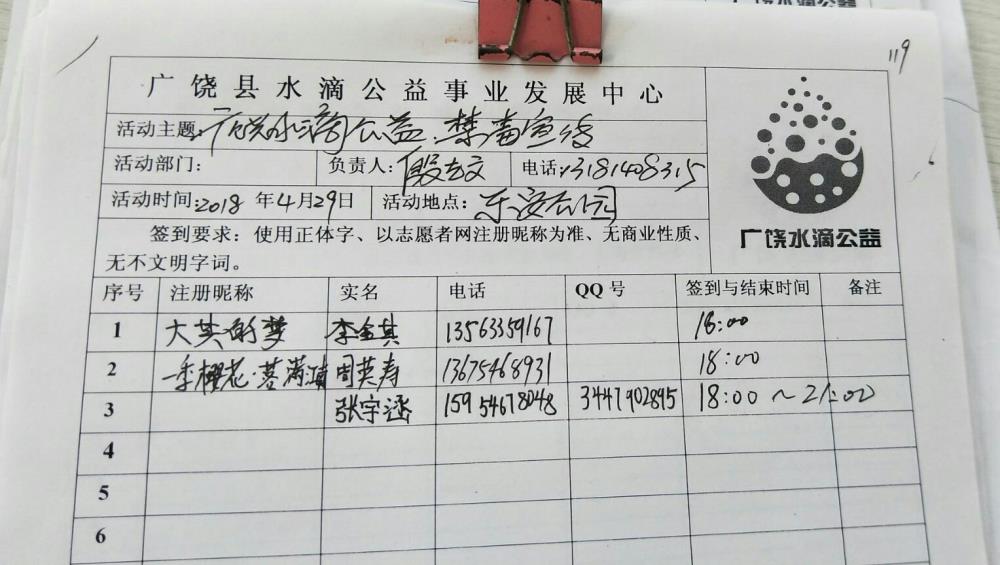 广饶水滴公益
119
广饶县水滴公益事业发展中心
活动主题:广饶水滴公益.禁毒宣传
活动部门: 负责人: 电话:13181408315
活动时间:2018年4月29日 活动地点:乐安公园
广饶水滴公益
签到要求:使用正体字、以志愿者网注册昵称为准、无商业性质、
无不文明字词。
序号 注册昵称 实名 电话 QQ号 签到与结束时间 备注
1 大英的梦 李金其 13563359167 18:00
2 一季樱花.菩满滇 周英寿 13675468931 18:00
3 张宇涵 15954678048 3447902895 18:00~21:00
4
5
6